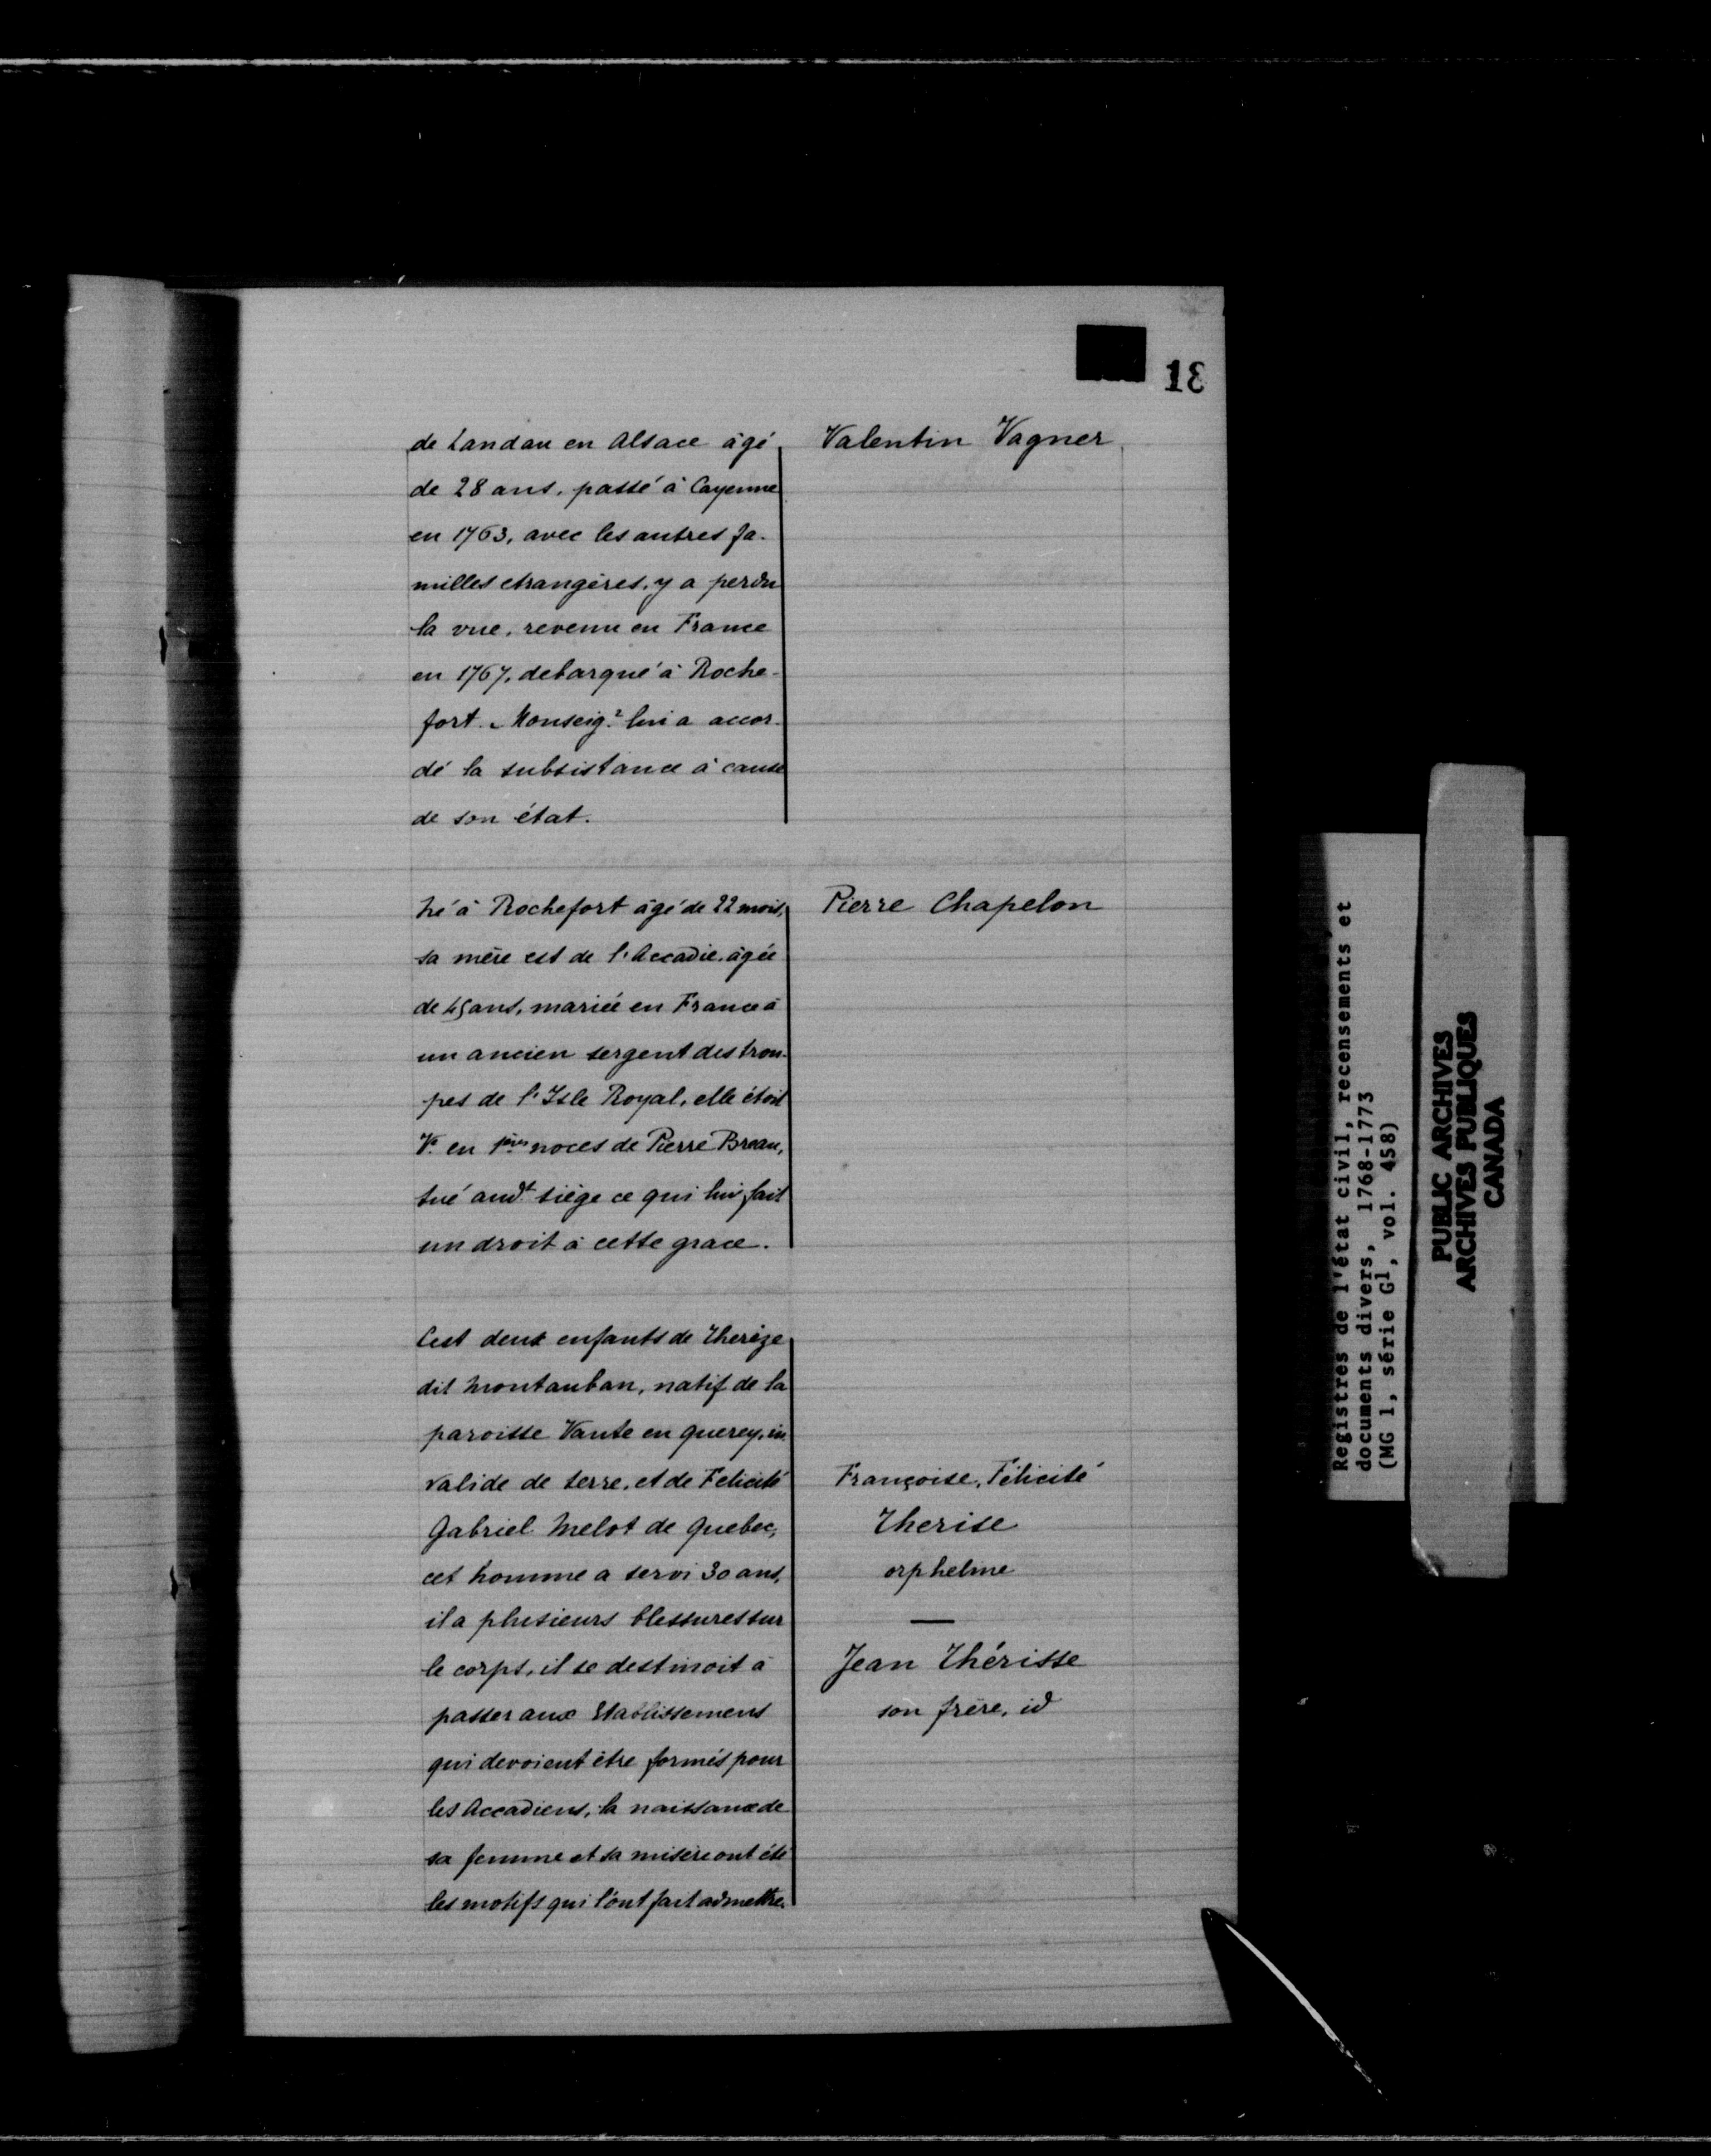 18
de Landau en Alsace âgé
de 28 ans, passé à Cayenne
en 1763, avec les autres fa-
milles etrangères, y a perdu
la vue, revenu en France
en 1767, debarqué à Roche-
fort. Monseigr lui a accor-
dé la subsistance à cause
de son état.
Valentin Vagner
Né à Rochefort âgé de 22 mois,
sa mère est de l'Accadie, âgée
de 45 ans, mariée en France à
un ancien sergent des trou-
pes de l'Isle Royal, elle étoit
Ve en 1ères noces de Pierre Breau,
tué audt siège ce qui lui fait
un droit à cette grace.
Pierre Chapelon
Cest deux enfants de Therèze
dit Montauban, natif de la
paroisse Vante en quercy, in-
valide de terre, et de Felicité
Gabriel Melot de Quebec,
cet homme a servi 30 ans,
il a plusieurs blessures sur
le corps, il se destinoit à
passer aux Etablissemens
qui devoient être formés pour
les Accadiens, la naissance de
sa femme et sa misère ont été
les motifs qui l'ont fait admettre.
Françoise, Félicité
Therise
orpheline
—
Jean Thérisse
son frère, id
Registres de l'état civil, recensements et
documents divers, 1768-1773
(MG 1, série G1, vol. 458)
PUBLIC ARCHIVES
ARCHIVES PUBLIQUES
CANADA